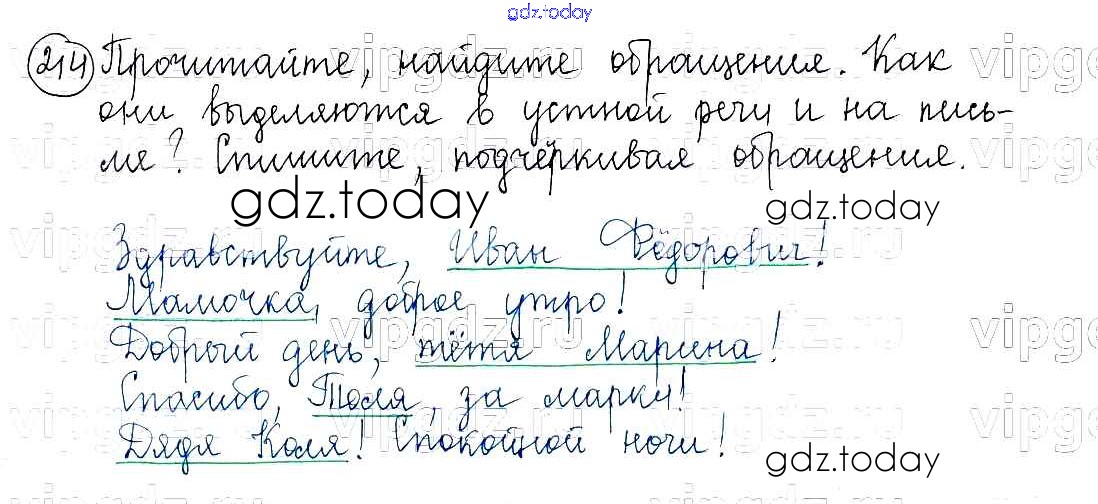 gdz.today
214 Прочитайте, найдите обращения. Как
они выделяются в устной речи и на пись-
ме? Спишите, подчёркивая обращения.
gdz.today
gdz.today
Здравствуйте, Иван Фёдорович!
Мамочка, доброе утро!
Добрый день, тётя Марина!
Спасибо, Толя, за марки!
Дядя Коля! Спокойной ночи!
gdz.today
vipgdz.ru